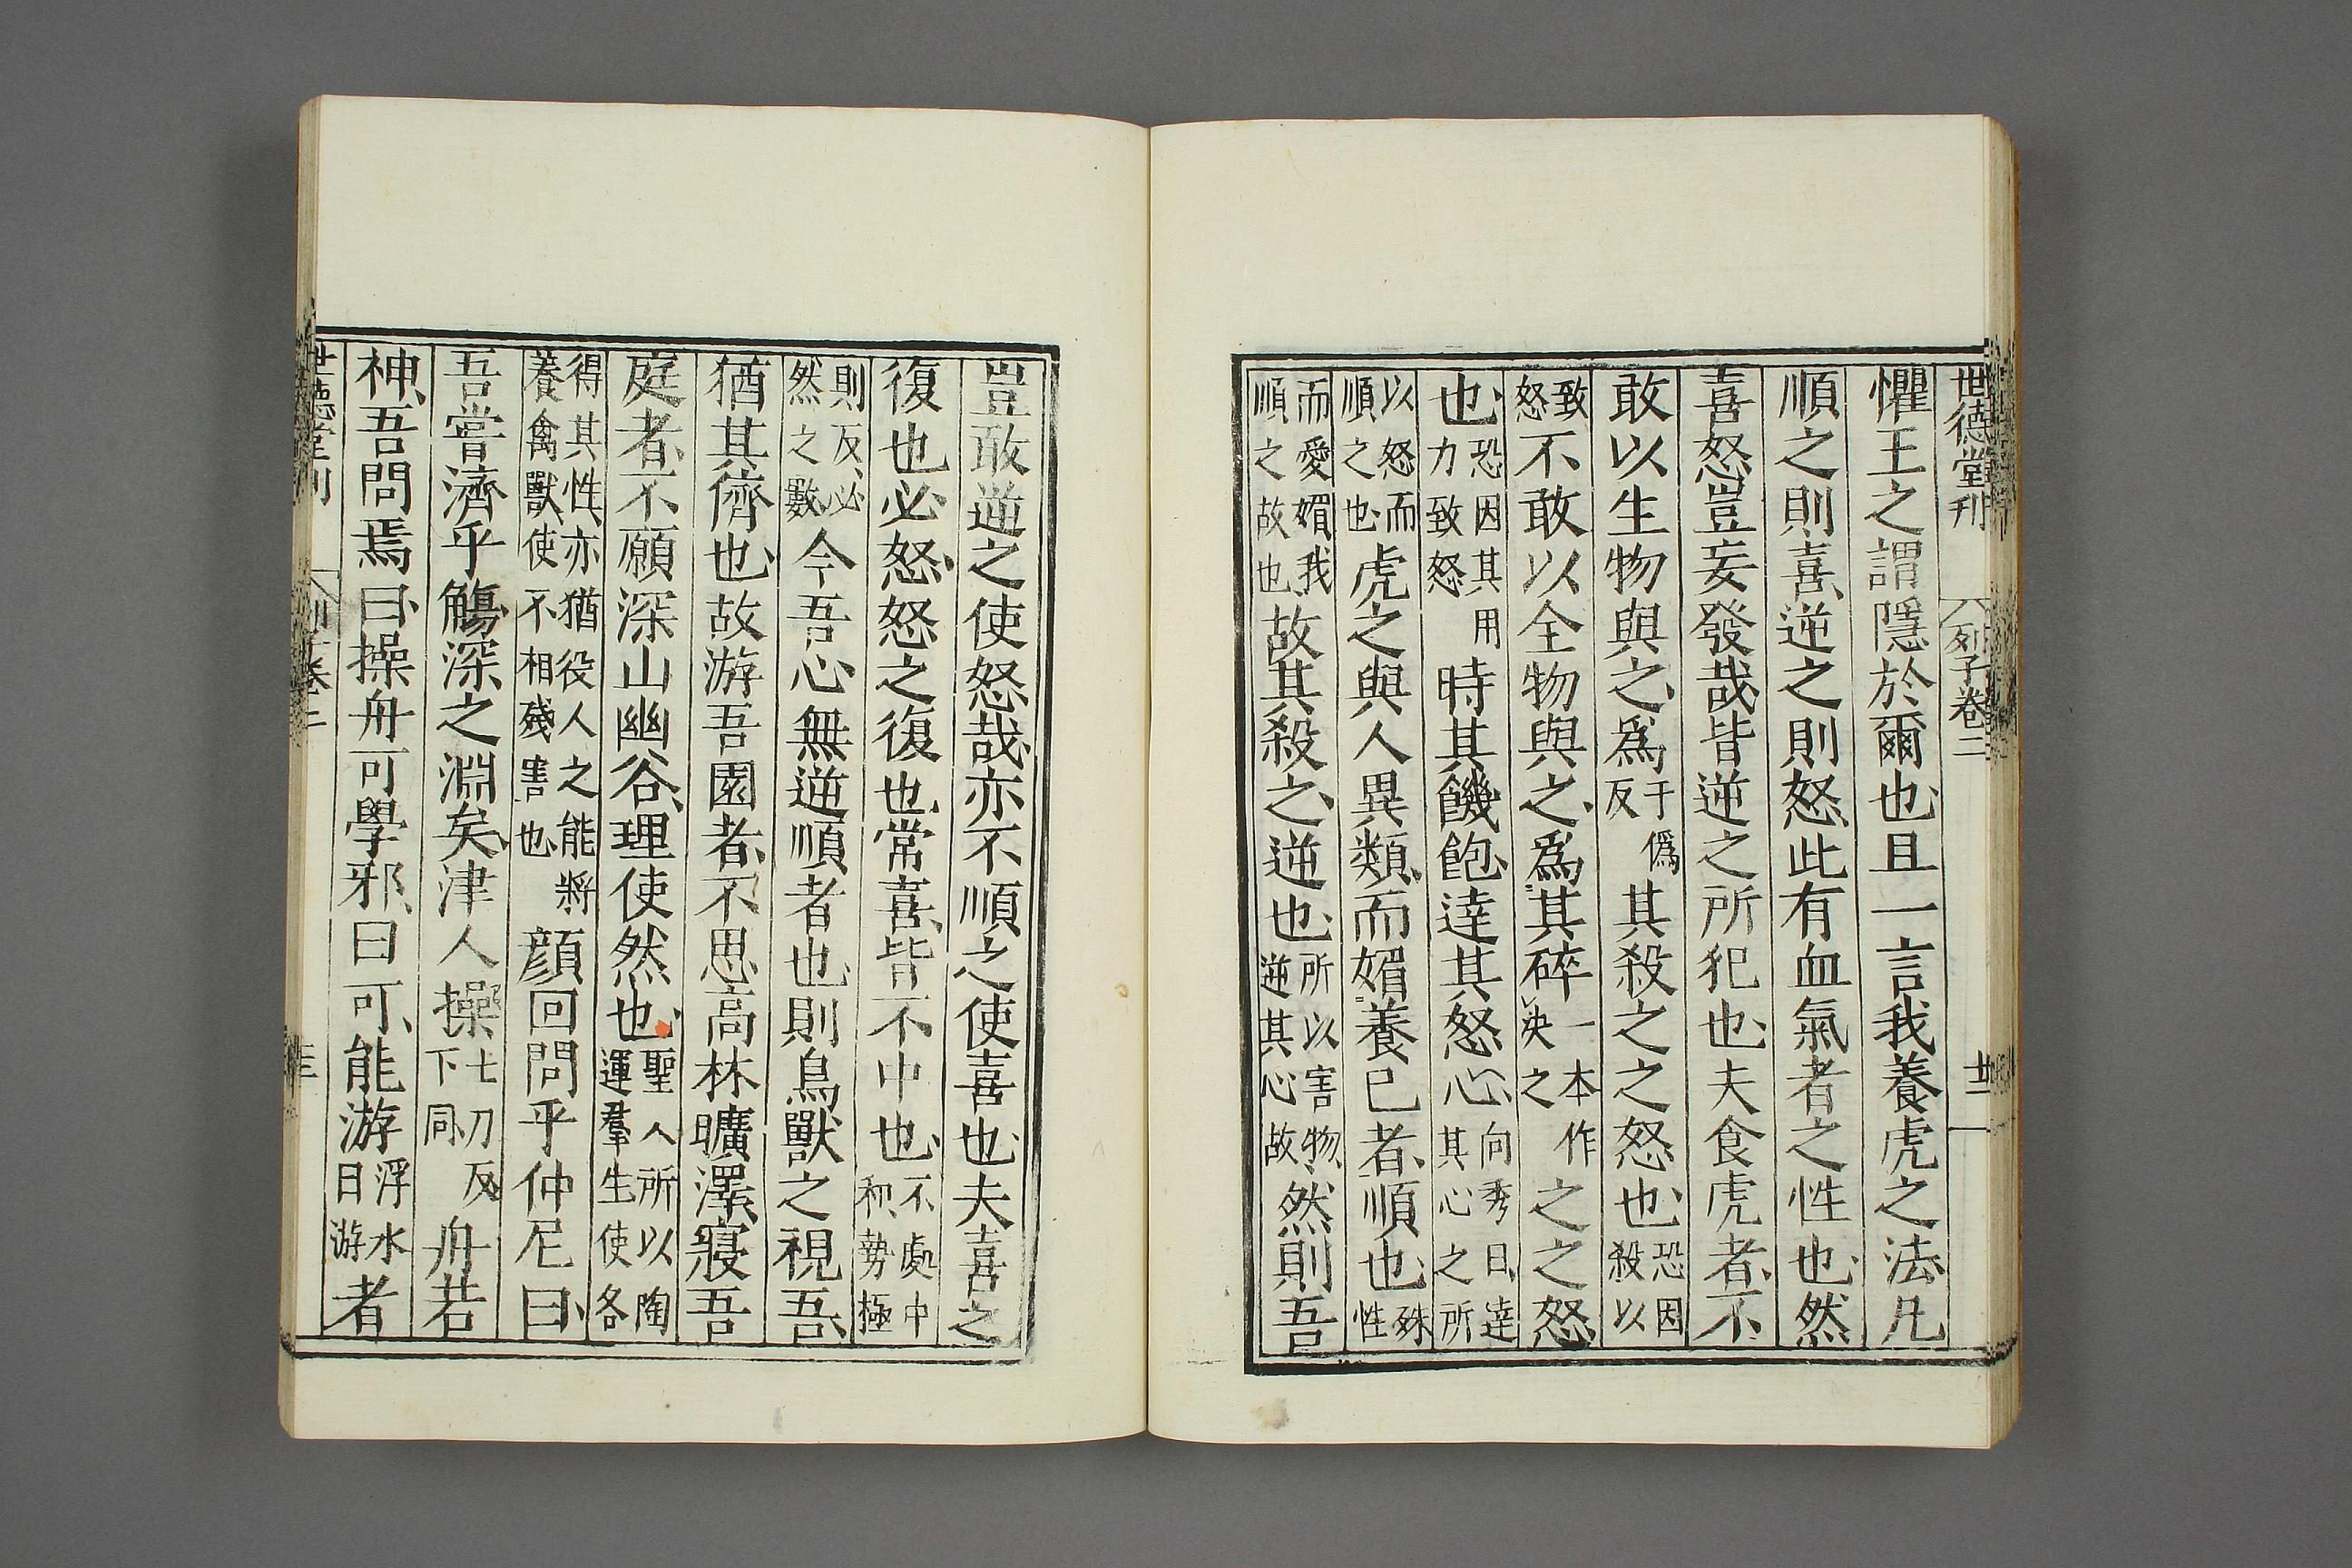 世德堂刊 列子卷二 廿二
懼王之謂隱於爾也且一言我養虎之法凡
順之則喜逆之則怒此有血氣者之性也然
喜怒豈妄發哉皆逆之所犯也夫食虎者不
敢以生物與之爲于僞反其殺之之怒也恐因殺以
致怒不敢以全物與之爲其碎一本作決之之之怒
也恐因其用力致怒時其饑飽達其怒心向秀曰達其心之所
以怒而順之也虎之與人異類而媚養己者順也殊性
而愛媚我順之故也故其殺之逆也所以害物逆其心故然則吾
豈敢逆之使怒哉亦不順之使喜也夫喜之
復也必怒怒之復也常喜皆不中也不處中和勢極
則反必然之數今吾心無逆順者也則鳥獸之視吾
猶其儕也故游吾園者不思高林曠澤寢吾
庭者不願深山幽谷理使然也聖人所以陶運羣生使各
得其性亦猶役人之能將養禽獸使不相殘害也顏回問乎仲尼曰
吾嘗濟乎觴深之淵矣津人操七刀反下同舟若
神吾問焉曰操舟可學邪曰可能游浮水曰游者
世德堂刊 列子卷二